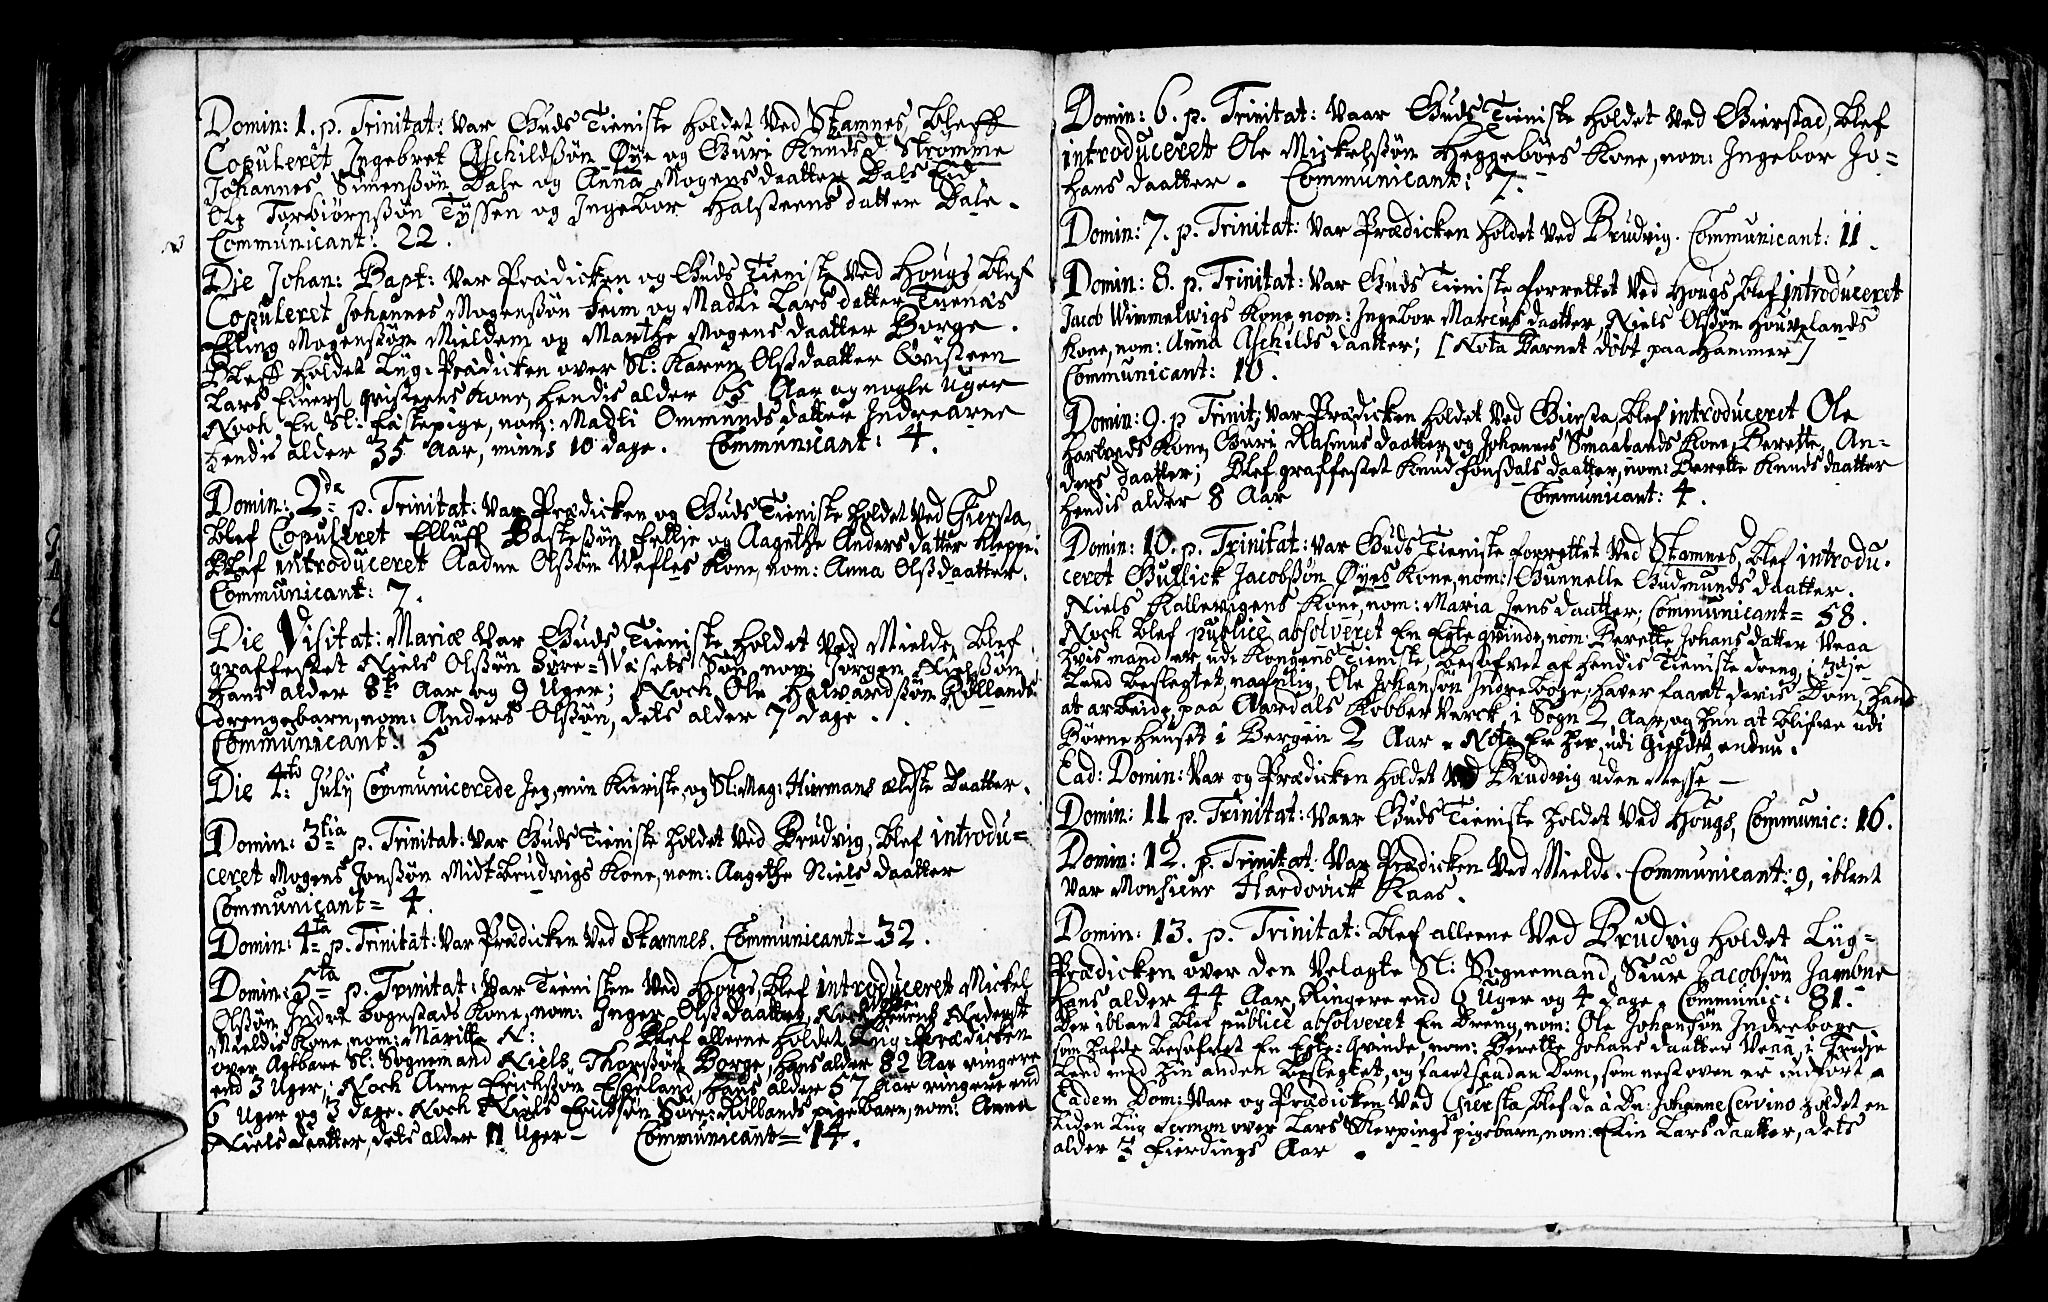 Domin: 1. p. Trinitat: var Guds Tieniste holdet ved Stamnes, Bleff
Copuleret Ingebret Aschildsøn Øye og Guri Knudsd Strømme
Johannes Simensøn Dale og Anna Mogens daatter Dals Eid
Ole Torbiörnsøn Tyssen og Ingebor Halsteens datter Dale.
Communicant: 22.
Die Johan: Bapt: var Prædicken og Guds Tieniste ved Hougs, Blef
Copuleret Johannes Mogensøn Heim og Madli Lars datter Tuenæs
Elling Mogensøn Mieldem og Marthe Mogens daatter Borge.
Bleff holdet Liig-Prædicken over Sl: Karen Olsdaatter Gristeen
Lars Giristeens Kone, hendis alder 65 Aar og nogle Uger
Noch En Sl: fæstepige, nom: Madli Ommunds datter Indrearne
hendis alder 35 Aar, minus 10 dage. Communicant: 4.
Domin: 2da p. Trinitat: var Prædicken og Guds Tieniste holdet ved Giersta,
blef Copuleret Elluff Baltesøn Eltie og Aagethe Anders datter Kleppe:
Blef introduceret Aadne Olsøn Wefles Kone, nom: Anna Olsdaatter.
Communicant: 7.
Die Visitat: Mariæ var Guds Tieniste holdet ved Mielde, Blef
graffestet Niels Olsøn Søre-Wasets Søn, nom: Jørgen Nielsøn
hans alder 8te Aar og 9 Uger; Noch Ole Halvardsøn Røllands
drengebarn, nom: Anders Olsøn, dets alder 7 dage.
Communicant: 5
Die 4to July Communicerede Jeg, min Kieriste, og Sl: Mag: Hiermans ældste daatter.
Domin: 3tia p. Trinitat: var Guds Tieniste holdet ved Brudvig, Blef introdu=
ceret Mogens Jonsøn Midtbrudvigs Kone, nom: Aagethe Niels daatter
Communicant= 4.
Domin: 4ta p. Trinitat: var Prædicken ved Stamnes. Communicant= 32.
Domin: 5ta p. Trinitat: var Tienisten ved Hougs, Blef introduceret Mickel
Olsøn Indre Bognestads Kone, nom: Inger Olsdaatter, Noch Henrich
Mieldis Kone, nom: Maritte N: Blef allerne holdet Liig-Prædicken
over Agtbare Sl: Sognemand Niels Thorsøn Borge, hans alder 82 Aar ringere
end 3 Uger; Noch Arne Erichsøn Espeland, hans alder 57 Aar ringere end
6 Uger og 3 dage. Noch Niels Erichsøn Søre-Røllands pigebarn, nom: Anna
Niels daatter, dets alder 11 Uger- Communicant= 14.
Domin: 6. p. Trinitat: Vaar Guds Tieniste holdet ved Gierstad, blef
introduceret Ole Mickelsøn Heggebøes Kone, nom: Ingebor Jo=
hans daatter. Communicant: 7.
Domin: 7. p. Trinitat: var Prædicken holdet ved Brudvig. Communicant: 11.
Domin: 8. p. Trinitat: var Guds Tieniste forrettet ved Hougs, blef introduceret
Jacob Wimmelwigs Kone, nom: Ingebor Marcus daatter, Niels Olsøn Houvelands
Kone, nom: Anna Aschilds daatter; [Nota Barnet døbt paa Hammer]
Communicant: 10.
Domin: 9. p Trinit: var Prædicken holdet ved Giersta, blef introduceret Ole
Hartveds Kone, Guri Rasmus daatter og Johannes Smaalands Kone, Berette An=
ders daatter; Blef graffestet Knud Fonsdals daatter, nom: Berette Knuds daatter
hendis alder 8 Aar Communicant: 4.
Domin: 10. p. Trinitat: var Guds Tieniste forrettet ved Stamnes, blef introdu-
ceret Gullick Jacobsøn Øyes Kone, nom: Gunnelle Gudmunds daatter.
Niels Kallevigens Kone, nom: Maria Jens daatter; Communicant= 58.
Noch blef publicè absolveret En Egte qvinde, nom: Berette Johans datter Veaa
hvis mand er udi Kongens Tieniste, besofvet af hendis Tieniste dreng, i 3dje
Leed beslegtet, nafnlig, Ole Johansøn Indrebøge, haver faaet deris Dom, hand
at arbeide paa Aardals Kobber Verck i Sogn 2 Aar, og hun at blifve udi
Børnehuuset i Bergen 2 Aar. Nota Er her udi endnu.
Ead: Domin: Var og Prædicken holdet ved Brudvig uden Messe-
Domin: 11 p. Trinitat: Vaar Guds Tieniste holdet ved Hougs, Communic: 16.
Domin: 12. p. Trinitat: Var Prædicken ved Mielde. Communicant: 9, iblant
var Monsieur Hardovick Kaas.
Domin: 13. p. Trinitat: blef allerne ved Brudvig holdet Liig=
Prædicken over den Velagte Sl: Sognemand Siur Jacobsøn Jambne
hans alder 44 Aar, Ringere end 6 Uger og 4 dage. Communic: 81.
Der iblant blef publicè absolveret En Dreng, nom: Ole Johansøn Indreboge
som hafde besofvet En Egte-Qvinde, nom: Berette Johans daatter Veaa i Tredje
Leed med hin anden beslegtet, og faaet saadan Dom, som nest oven er indført.
Eadem Dom: Var og Prædicken ved Giersta, blef da à Dn: Johanne Cervino holdet en
liden Liig Sermon over Lars Skerpings pigebarn, nom: Elin Lars daatter, dets
alder 3 fierdings Aar.